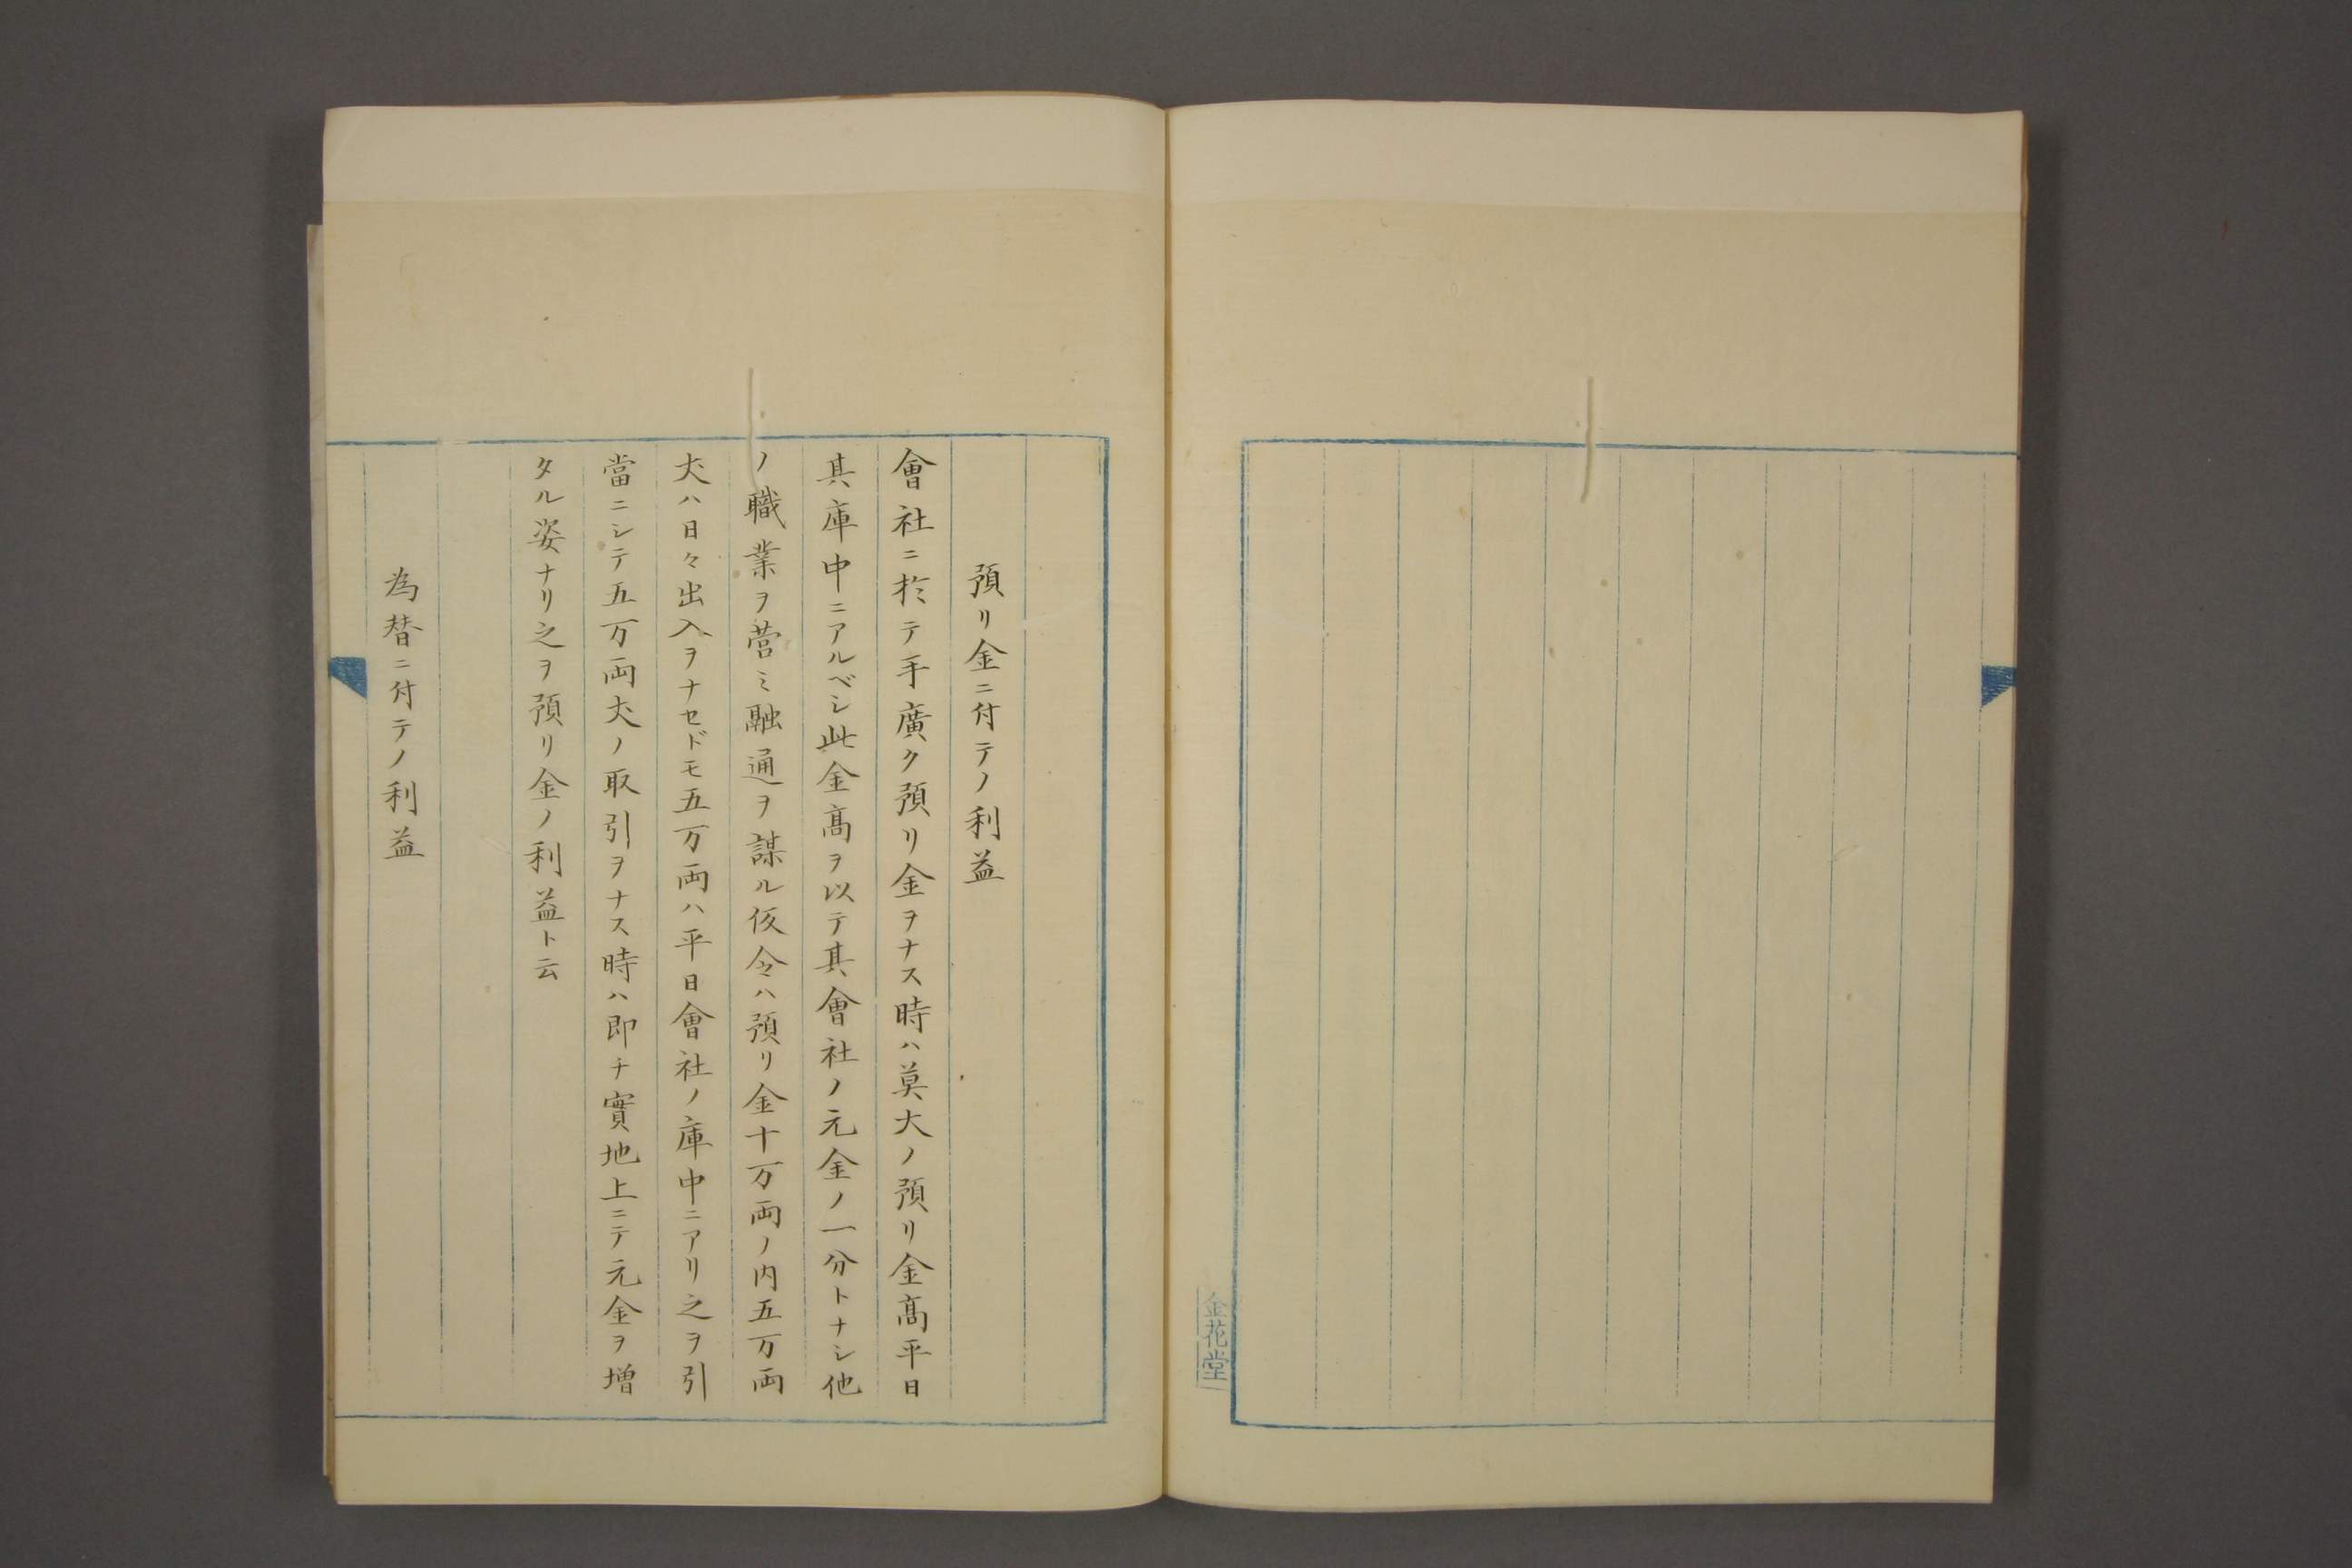 金花堂
預リ金ニ付テノ利益
會社ニ於テ手廣ク預リ金ヲナス時ハ莫大ノ預リ金髙平日
其庫中ニアルベシ此金髙ヲ以テ其會社ノ元金ノ一分トナシ他
ノ職業ヲ営ミ融通ヲ謀ル仮令ハ預リ金十万両ノ内五万両
丈ハ日々出入ヲナセドモ五万両ハ平日會社ノ庫中ニアリ之ヲ引
當ニシテ五万両丈ノ取引ヲナス時ハ即チ實地上ニテ元金ヲ増
タル姿ナリ之ヲ預リ金ノ利益ト云
為替ニ付テノ利益